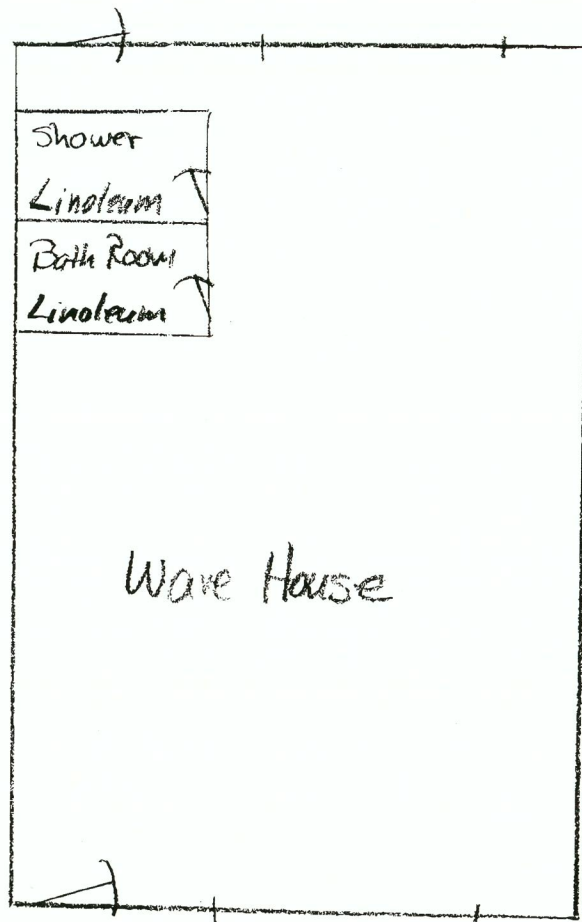 Shower
Linoleum
Bath Room
Linoleum
Ware House